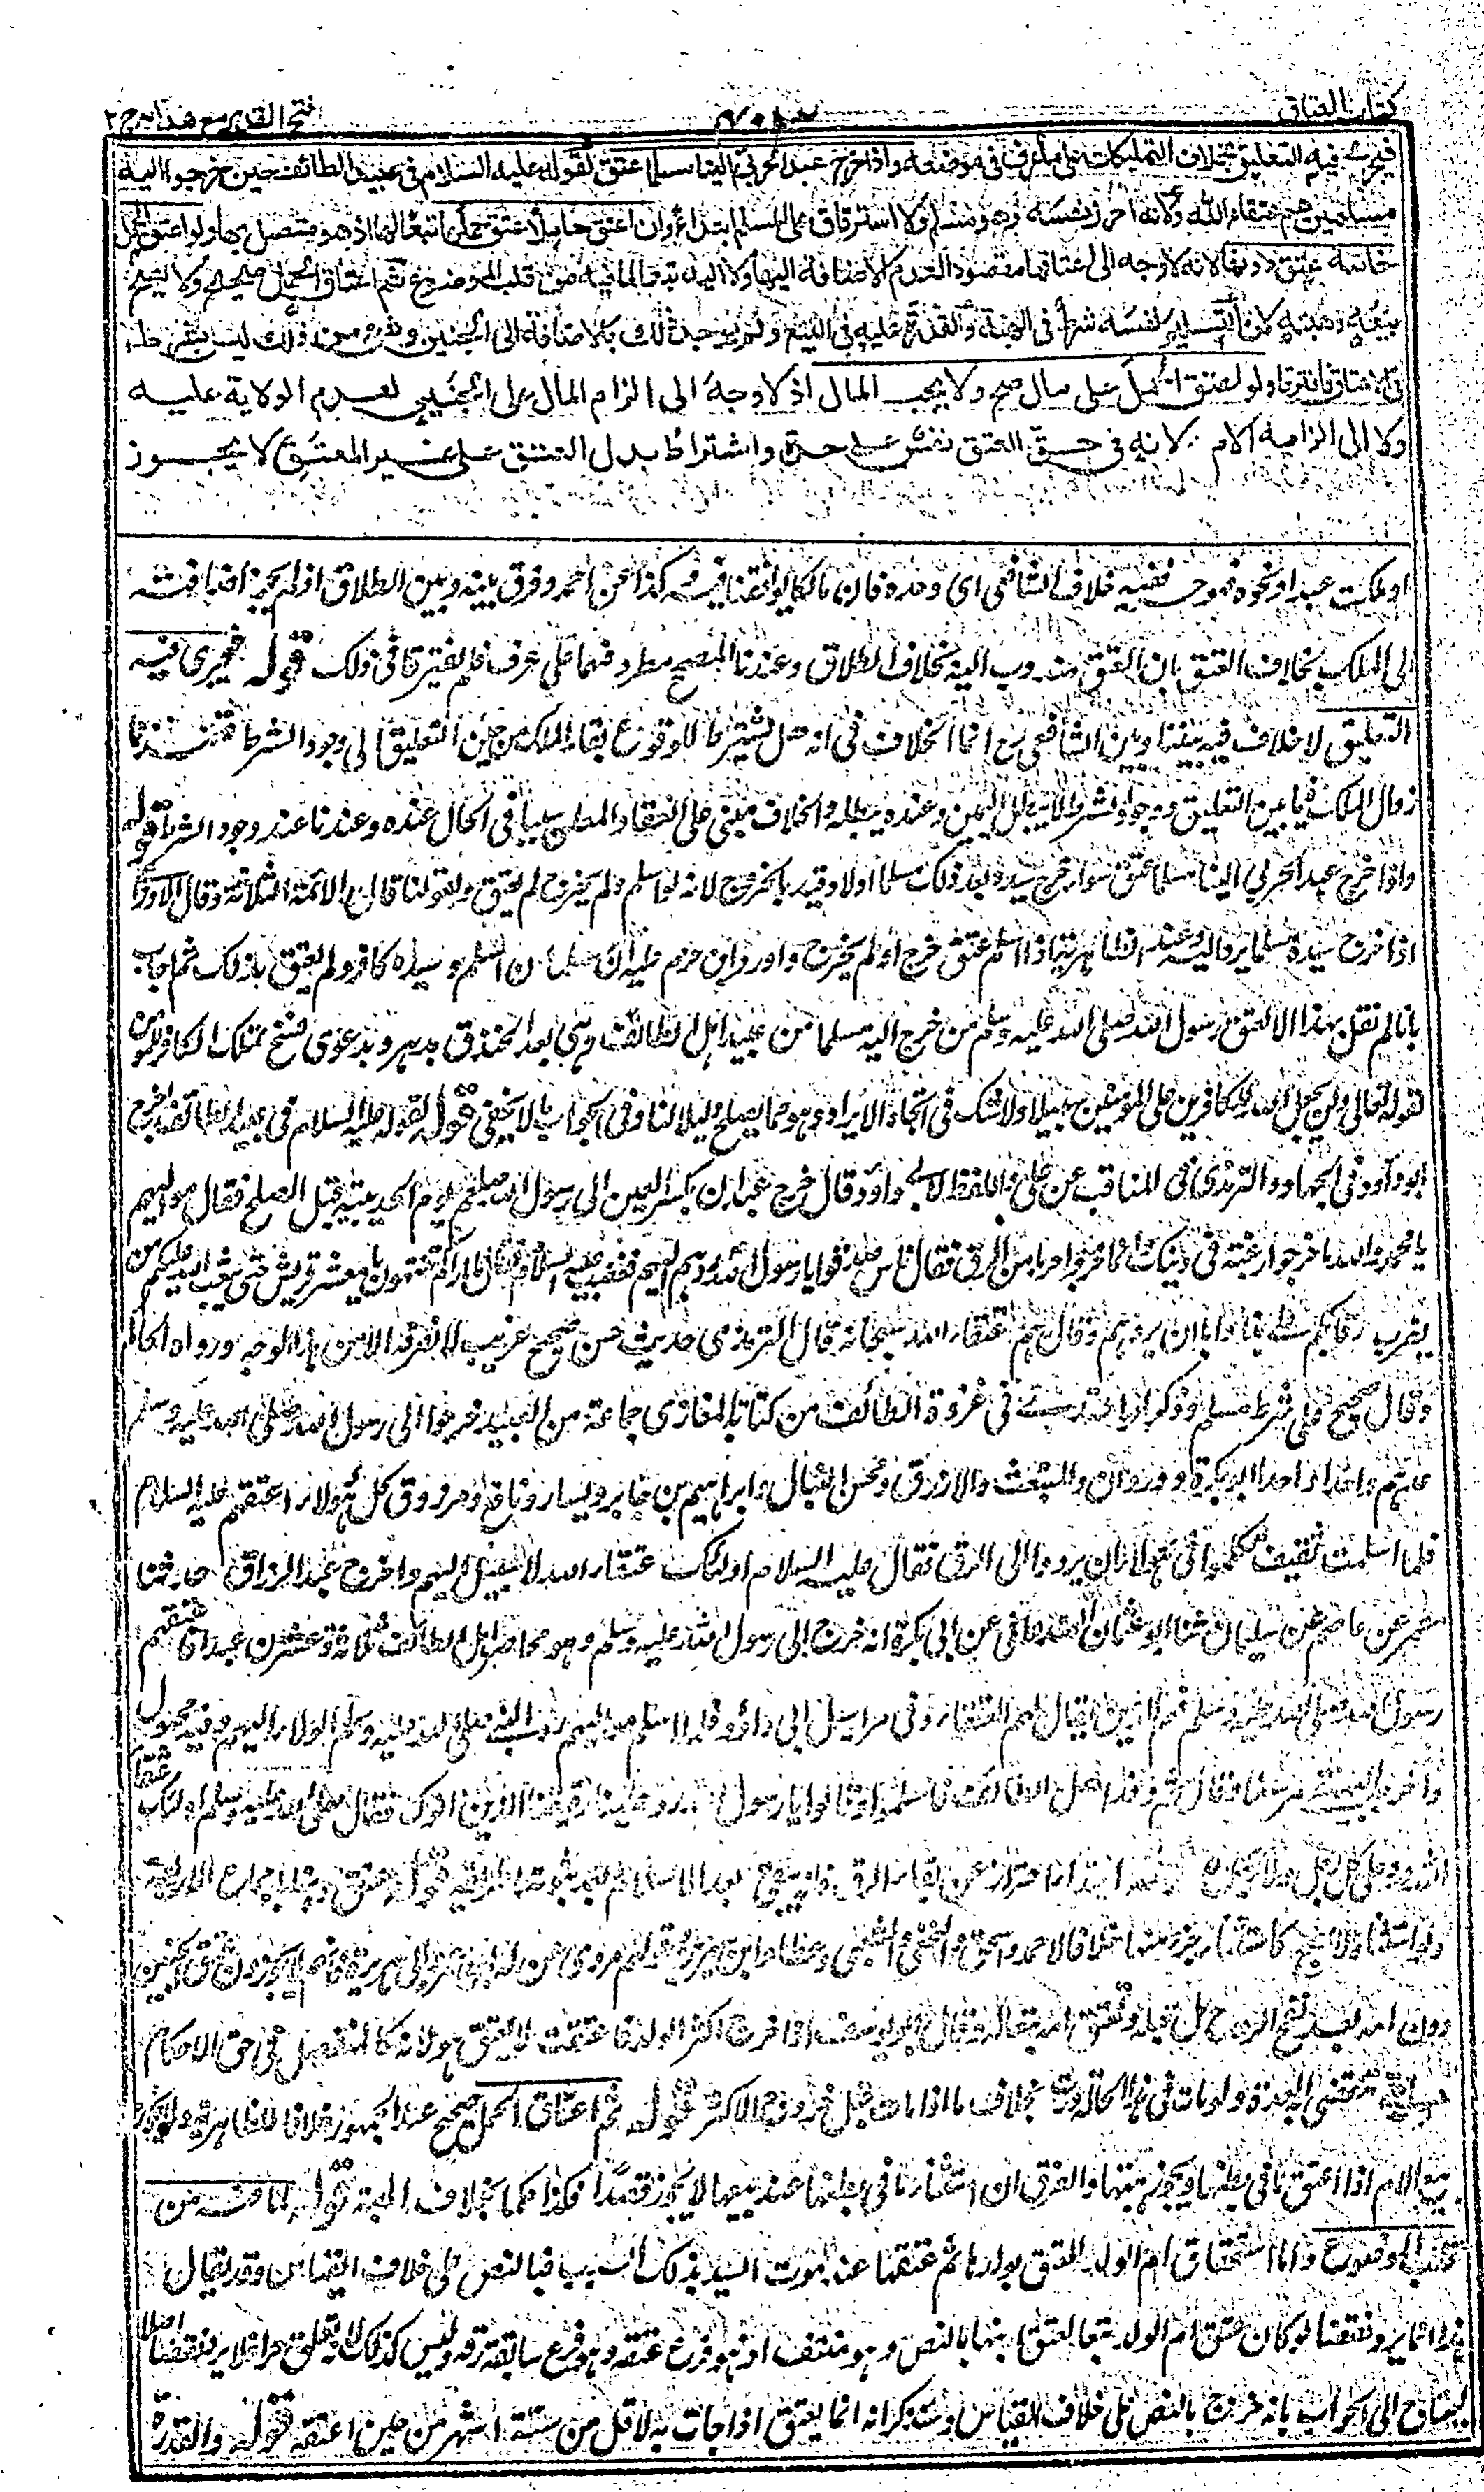 كتاب العتاق
فتح القدير مع هدايه ج ٢
فيجرى فيه التعليق بخلاف التمليكات على ما عرف فى موضعه واذا خرج عبد الحربى الينا مسلما عتق لقوله عليه السلام فى عبيد الطائف حين خرجوا اليه
مسلمين هم عتقاء الله ولانه احرز نفسه وهو مسلم ولا استرقاق على المسلم ابتداء وان اعتق حاملا عتق حملها تبعا لها اذ هو متصل بها ولو اعتق الحمل
خاصة عتق دونها لانه لا وجه الى اعتاقها مقصودا لعدم الاضافة اليها ولا اليه تبعا لما فيه من قلب الموضوع ثم اعتاق الحمل صحيح ولا يصح
بيعه وهبته لان التسليم نفسه شرط فى الهبة والقدرة عليه فى البيع ولم يوجد ذلك بالاضافة الى الجنين وشئ من ذلك ليس بشرط
فى الاعتاق فافترقا ولو اعتق الحمل على مال صح ولا يجب المال اذ لا وجه الى الزام المال على الجنين لعدم الولاية عليه
ولا الى الزامه الام لانه فى حق العتق نفس على حدة واشتراط بدل العتق على غير المعتق لا يجوز
او ملكت عبدا ونحوه فهو حر ففيه خلاف الشافعى اى وحده فان مالكا يوافقنا فيه كذا عن احمد وفرق بينه وبين الطلاق اذ لم يجز اضافته
الى الملك بخلاف العتق بان العتق مندوب اليه بخلاف الطلاق وعندنا المصحح مطرد فيهما على عرف فلم يفترقا فى ذلك قوله فيجرى فيه
التعليق لا خلاف فيه بيننا وبين الشافعى رح انما الخلاف فى انه هل يشترط للوقوع بقاء الملك من حين التعليق الى وجود الشرط فعندنا
زوال الملك فيما بين التعليق ووجود الشرط لا يبطل اليمين وعنده يبطله والخلاف مبنى على انعقاد المعلق سببا فى الحال عنده وعندنا عند وجود الشرط قوله
واذا خرج عبد الحربى الينا مسلما عتق سواء خرج سيده بعد ذلك مسلما اولا وقيد بالخروج لانه لو اسلم ولم يخرج لم يعتق وبقولنا قال الائمة الثلاثة وقال الاوزاعى
اذا خرج سيده مسلما يرد اليه وعند الظاهرية اذا اسلم عتق خرج او لم يخرج واورد ابن حزم عليه ان سلمان اسلم وسيده كافر ولم يعتق بذلك ثم اجاب
بانا لم نقل بهذا الا لعتق رسول الله صلى الله عليه وسلم من خرج اليه مسلما من عبيد اهل الطائف وهى بعد الخندق بدهر وبدعوى نسخ تملك الكافر للمؤمن
لقوله تعالى ولن يجعل الله للكافرين على المؤمنين سبيلا ولا شك فى اتجاه الايراد وهو مما يصلح دليلا لنا وفى الجواب ما لا يخفى قوله لقوله عليه السلام فى عبيد الطائف اخرج
ابو داود فى الجهاد والترمذى فى المناقب عن على واللفظ لابى داود قال خرج عبدان بكسر العين الى رسول الله صلعم يوم الحديبية قبل الصلح فقال مواليهم
يا محمد والله ما خرجوا رغبة فى دينك انما خرجوا هربا من الرق فقال ناس صدقوا يا رسول الله ردهم اليهم فغضب عليه السلام فقال ما اراكم تنتهون يا معشر قريش حتى يبعث الله عليكم من
يضرب رقابكم على هذا وابى ان يردهم وقال هم عتقاء الله سبحانه قال الترمذى حديث حسن صحيح غريب لا نعرفه الا من هذا الوجه ورواه الحاكم
وقال صحيح على شرط مسلم وذكر الواقدى فى غزوة الطائف من كتاب المغازى جماعة من العبيد خرجوا الى رسول الله صلى الله عليه وسلم
عدهم واحدا واحدا ابو بكرة ووردان والمنبعث والازرق ومحنس النبال وابراهيم بن جابر ويسار ونافع ومرزوق كل هؤلاء اعتقهم عليه السلام
فلما اسلمت ثقيف تكلموا فى هؤلاء ان يردوا الى الرق فقال عليه السلام اولئك عتقاء الله لا سبيل اليهم واخرج عبد الرزاق حدثنا
معمر عن عاصم عن سليمان ثنا ابو عثمان النهدى عن ابى بكرة انه خرج الى رسول الله عليه وسلم وهو محاصر اهل الطائف بثلاثة وعشرين عبدا فاعتقهم
رسول الله صلى الله عليه وسلم فهم الذين يقال لهم العتقاء وفى مراسيل ابى داود ولما اسلم مواليهم رد النبى صلى الله عليه وسلم الولاء اليهم وفيه مجهول
واخرج البيهقى مرسلا وقال ثم وفد اهل الطائف فاسلموا وقالوا يا رسول الله رد علينا رقيقنا الذين اتوك فقال صلى الله عليه وسلم اولئك عتقاء
الله ورد على كل رجل ولاء عبده قوله ابتداء احتراز عن بقاء الرق فانه يبقى بعد الاسلام
دون امه بعد نفخ الروح لا قبله وتعتق امه تبعا له وقال ابو يوسف اذا خرج اكثر الولد فاعتقت لا يعتق هو لانه كالمنفصل فى حق الاحكام
تنقضى العدة ولو مات فى هذه الحالة ورث بخلاف ما اذا مات قبل خروج الاكثر قوله ثم اعتاق الحمل صحيح عند الجمهور خلافا للظاهرية ولا يجوز
بيع الام اذا اعتق ما فى بطنها ويجوز هبتها والفرق ان استثناء ما فى بطنها عند بيعها لا يجوز قصدا فكذا حكما بخلاف الهبة قوله لما فيه من
قلب الموضوع واما استحقاق ام الولد العتق بولدها ثم عتقها عند موت السيد بذلك السبب فبالنص على خلاف القياس وقد يقال
هذا انما يرد نقضا لو كان عتق ام الولد تبعا لعتق ابنها بالنص وهو منتف اذ هو فرع عتقه وهو فرع سابقة رقه وليس كذلك لانه يعلق حرا فلا يرد نقضا اصلا
ليحتاج الى الجواب بانه خرج بالنص على خلاف القياس وسنذكر انه انما يعتق اذا جات به لاقل من ستة اشهر من حين اعتقه قوله والقدرة